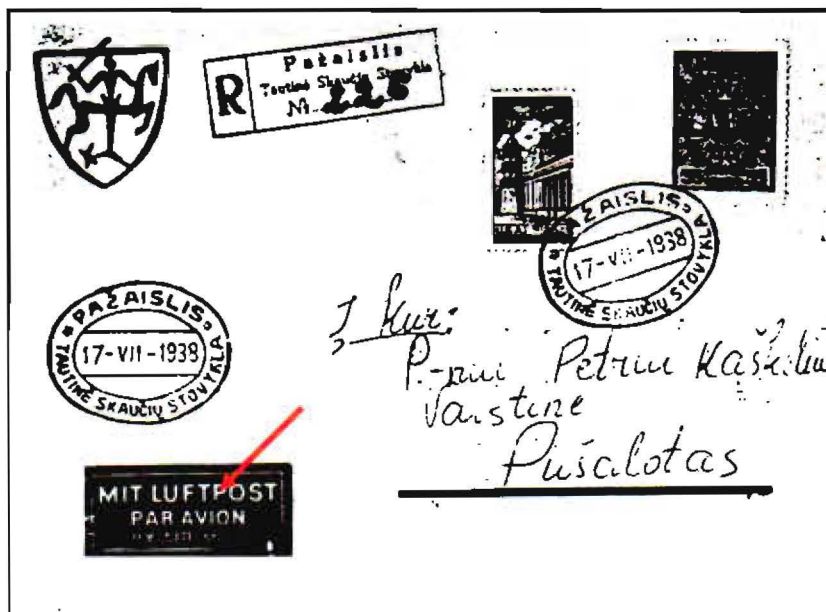 R
Pažaislis
Tautinė Skaučių Stovykla
№ 225
PAŽAISLIS
17-VII-1938
TAUTINĖ SKAUČIŲ STOVYKLA
PAŽAISLIS
17-VII-1938
TAUTINĖ SKAUČIŲ STOVYKLA
Petrui
Vaistinė
Pušalotas
MIT LUFTPOST
PAR AVION